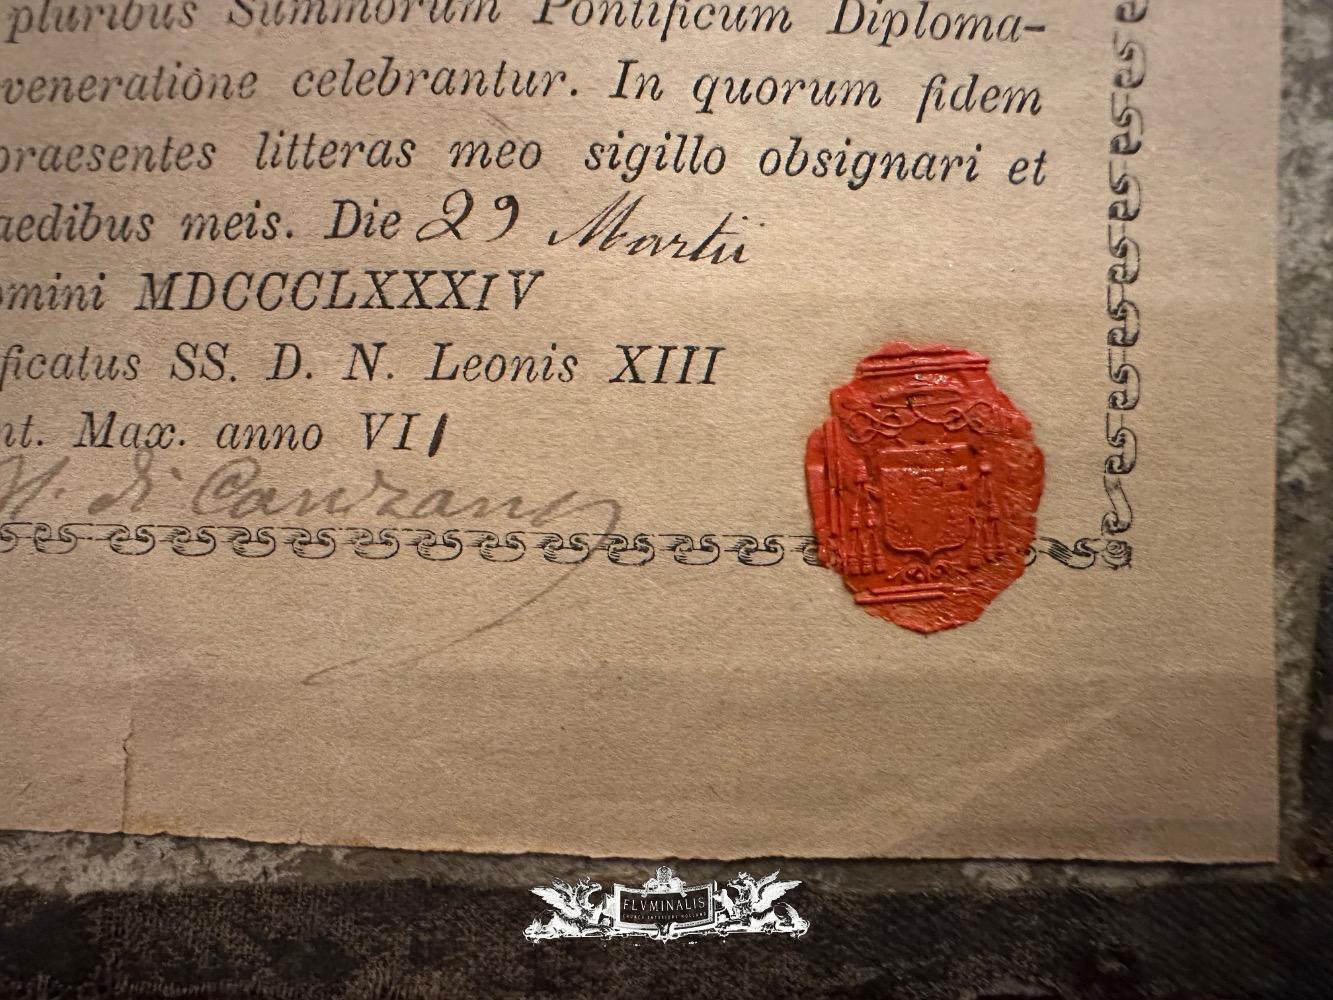 pluribus Summorum Pontificum Diploma-
veneratione celebrantur. In quorum fidem
praesentes litteras meo sigillo obsignari et
aedibus meis. Die 29 Martii
omini MDCCCLXXXIV
ficatus SS. D. N. Leonis XIII
nt. Max. anno VII
di Canzano
FLVMINALIS